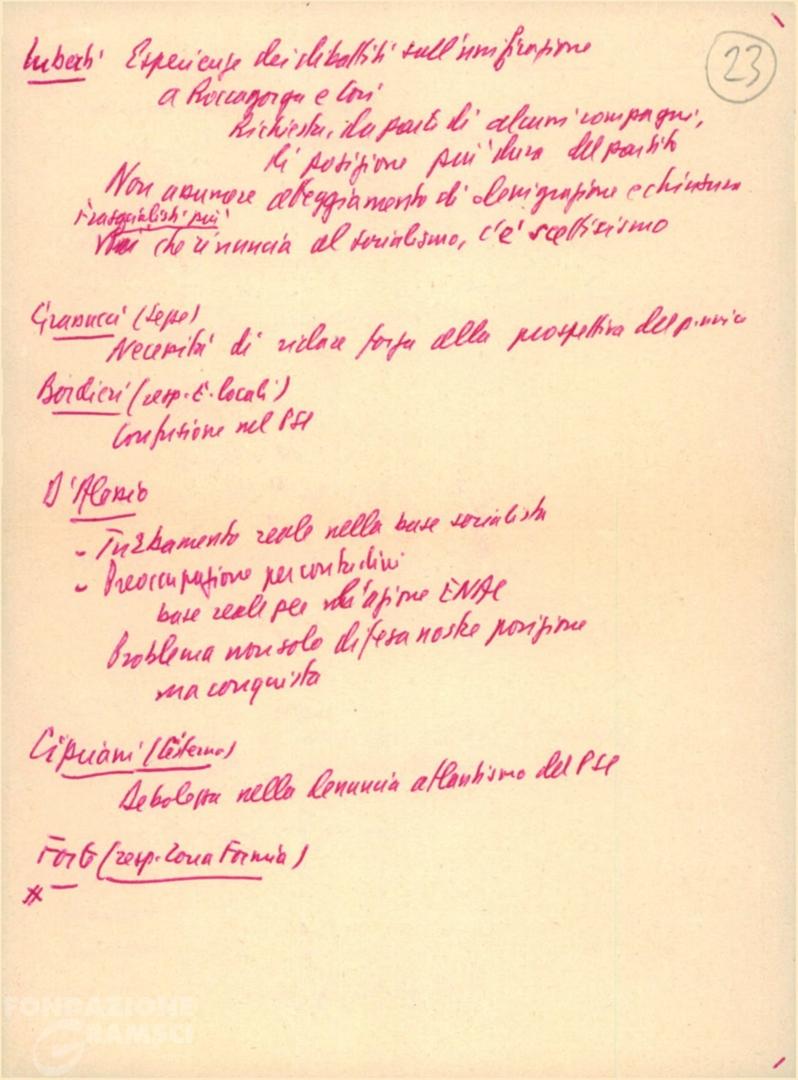 23
Imberti Esperienze dei dibattiti sull'unificazione
a Roccagorga e Cori
Richiesta, da parte di alcuni compagni,
di posizione più dura del partito
Non assumere atteggiamento di denigrazione e chiusura
Fra socialisti più
che rinuncia al socialismo, c'è scetticismo
(Sezze)
Necessità di ridare forza alla prospettiva del
Bordieri (resp. E. locali)
Confusione nel PSI
D'Alessio
- Turbamento reale nella base socialista
- Preoccupazione per contadini
base reale per azione
Problema non solo difesa nostre posizione
ma conquista
Cipriani (Cisterna)
Debolezza nella denuncia atlantismo del PSI
Forte (resp. Zona Formia)
FONDAZIONE
GRAMSCI